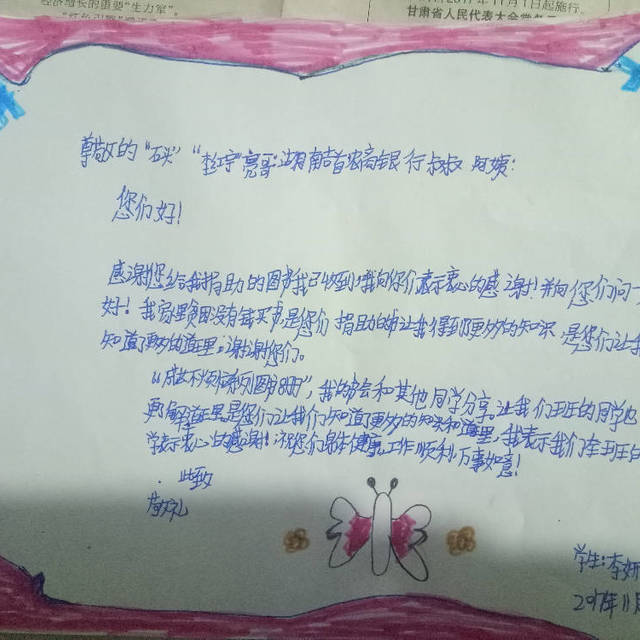 经济增长的重要"生力军"。
年11月1日起施行。
甘肃省人民代表大会常务
尊敬的"石头""李江宇"亮哥:湖南省农商银行叔叔 阿姨:
您们好!
感谢您给我捐助的图书我已收到!我向你们表示衷心的感谢!并向您们问一
好!我家里贫困没有钱买书是您们 捐助的书让我得到了更多的知识 是您们让我
知道了更多的道理。谢谢您们。
系列图书8册",我的会和其他同学分享,让我们班的同学也
了解道理是您们让我们知道了更多的知识和道理,我表示我们全班的
学表示衷心的感谢!祝您们身体健康,工作顺利,万事如意!
此致
敬礼
学生:李妍
11月